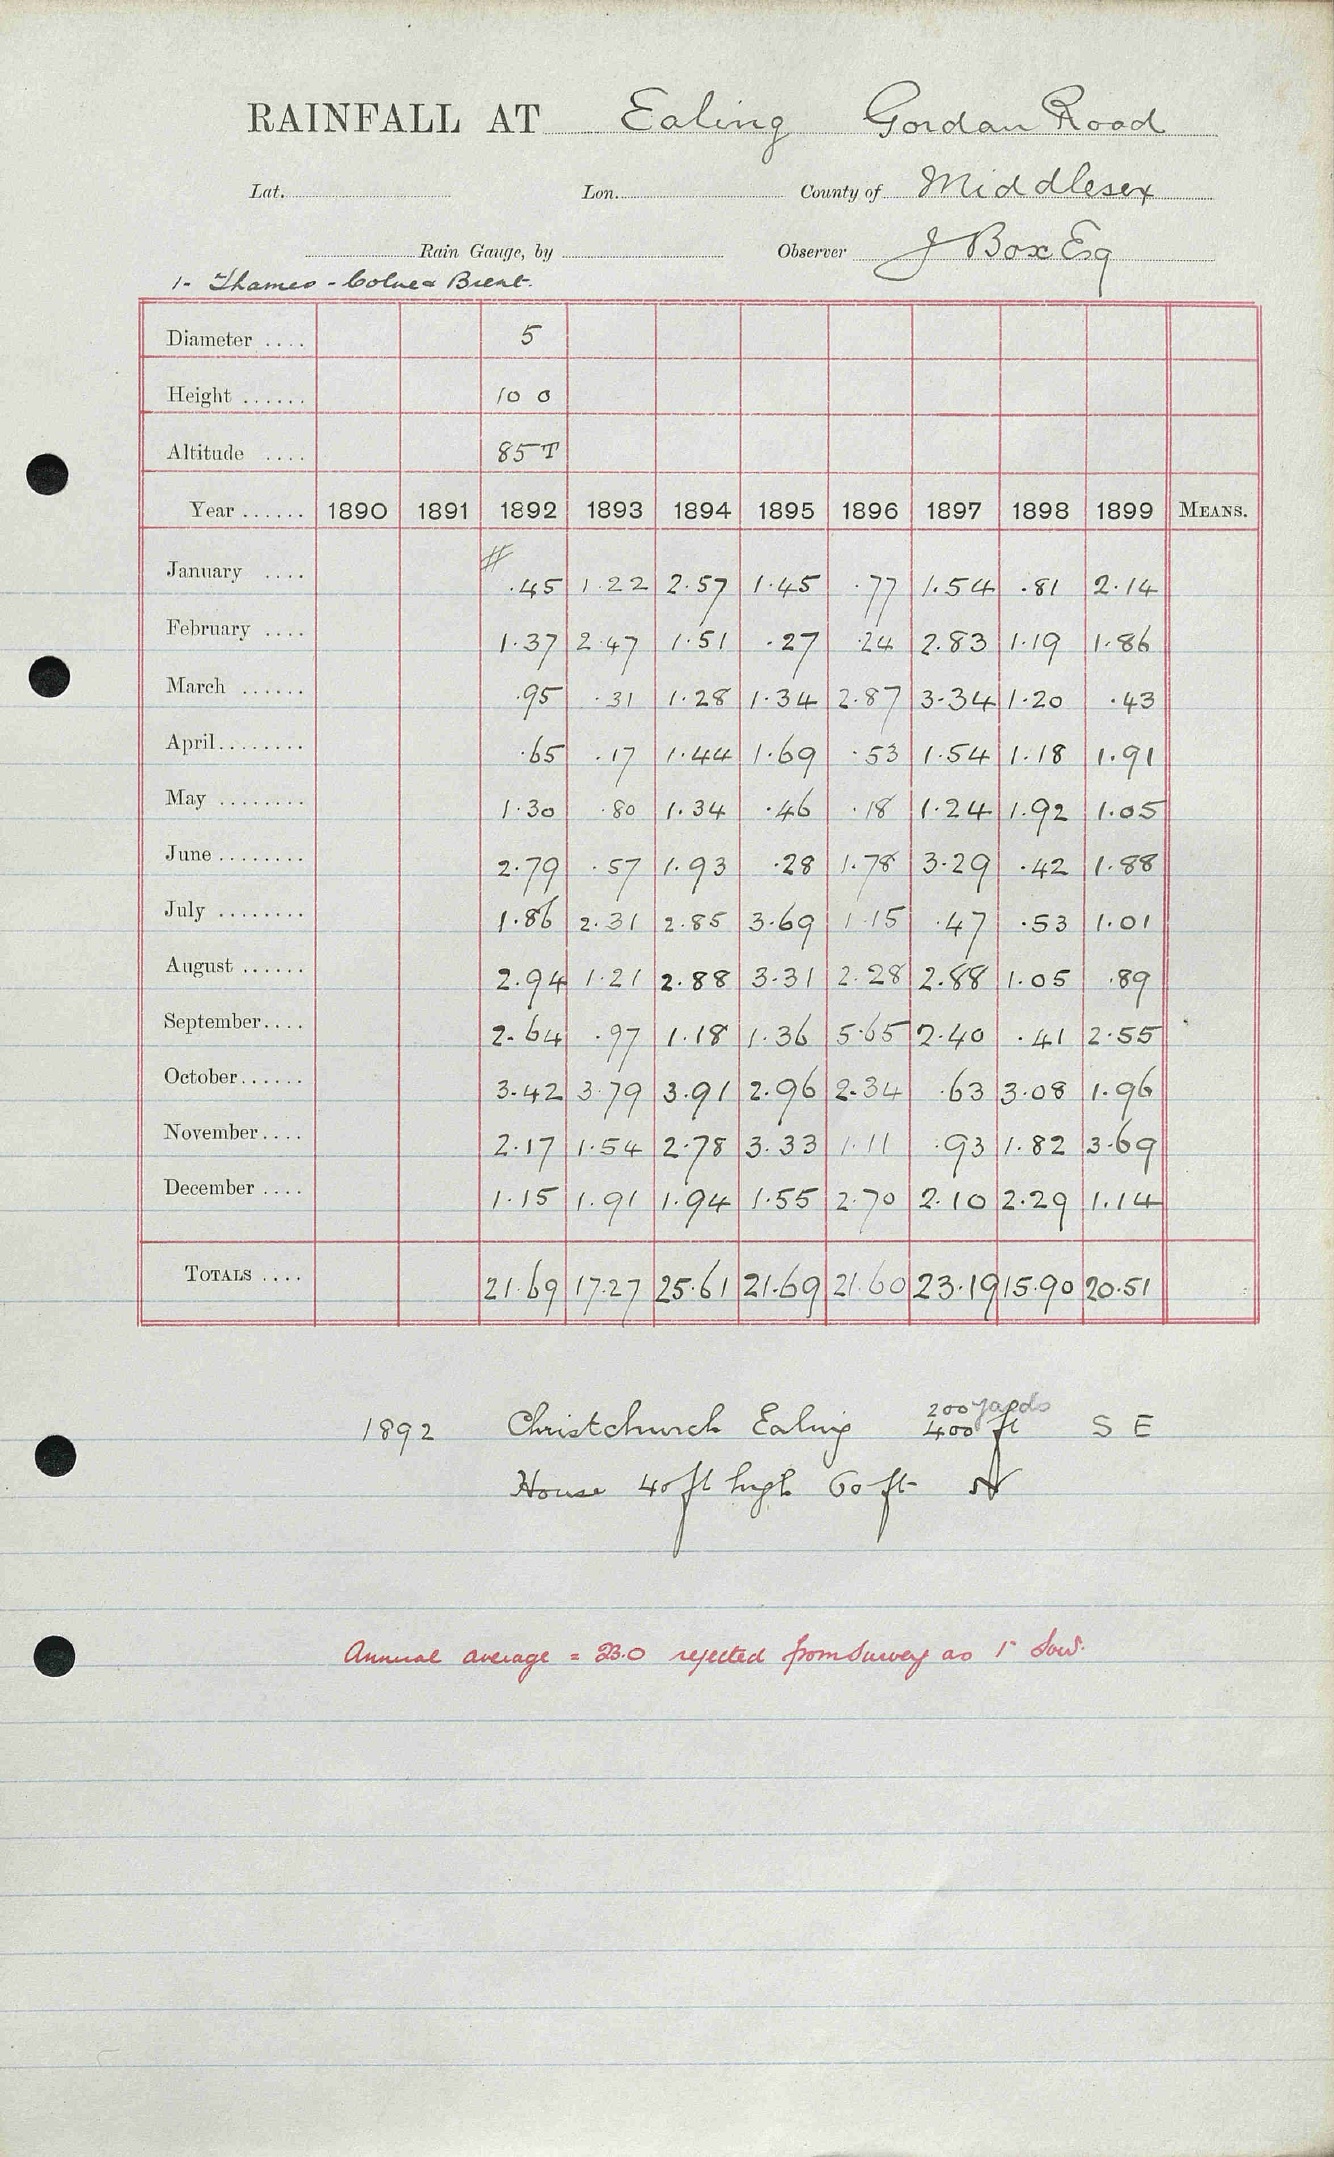 RAINFALL AT Ealing Gordan Road
Lat. Lon. County of Middlesex
Rain Gauge, by Observer J Box Esq
1- Thames - Colne & Brent.
Diameter .... 5
Height ...... 10 0
Altitude .... 85 T
Year ...... 1890 1891 1892 1893 1894 1895 1896 1897 1898 1899 MEANS.
#
January .... .45 1.22 2.57 1.45 .77 1.54 .81 2.14
February .... 1.37 2.47 1.51 .27 .24 2.83 1.19 1.86
March ...... .95 .31 1.28 1.34 2.87 3.34 1.20 .43
April........ .65 .17 1.44 1.69 .53 1.54 1.18 1.91
May ........ 1.30 .80 1.34 .46 .18 1.24 1.92 1.05
June ........ 2.79 .57 1.93 .28 1.78 3.29 .42 1.88
July ........ 1.86 2.31 2.85 3.69 1.15 .47 .53 1.01
August ...... 2.94 1.21 2.88 3.31 2.28 2.88 1.05 .89
September.... 2.64 .97 1.18 1.36 5.65 2.40 .41 2.55
October...... 3.42 3.79 3.91 2.96 2.34 .63 3.08 1.96
November.... 2.17 1.54 2.78 3.33 1.11 .93 1.82 3.69
December .... 1.15 1.91 1.94 1.55 2.70 2.10 2.29 1.14
TOTALS .... 21.69 17.27 25.61 21.69 21.60 23.19 15.90 20.51
200 yards
1892 Christchurch Ealing 400 ft S E
House 40 ft high 60 ft N
Annual average = 23.0 rejected from Survey as 1" low.